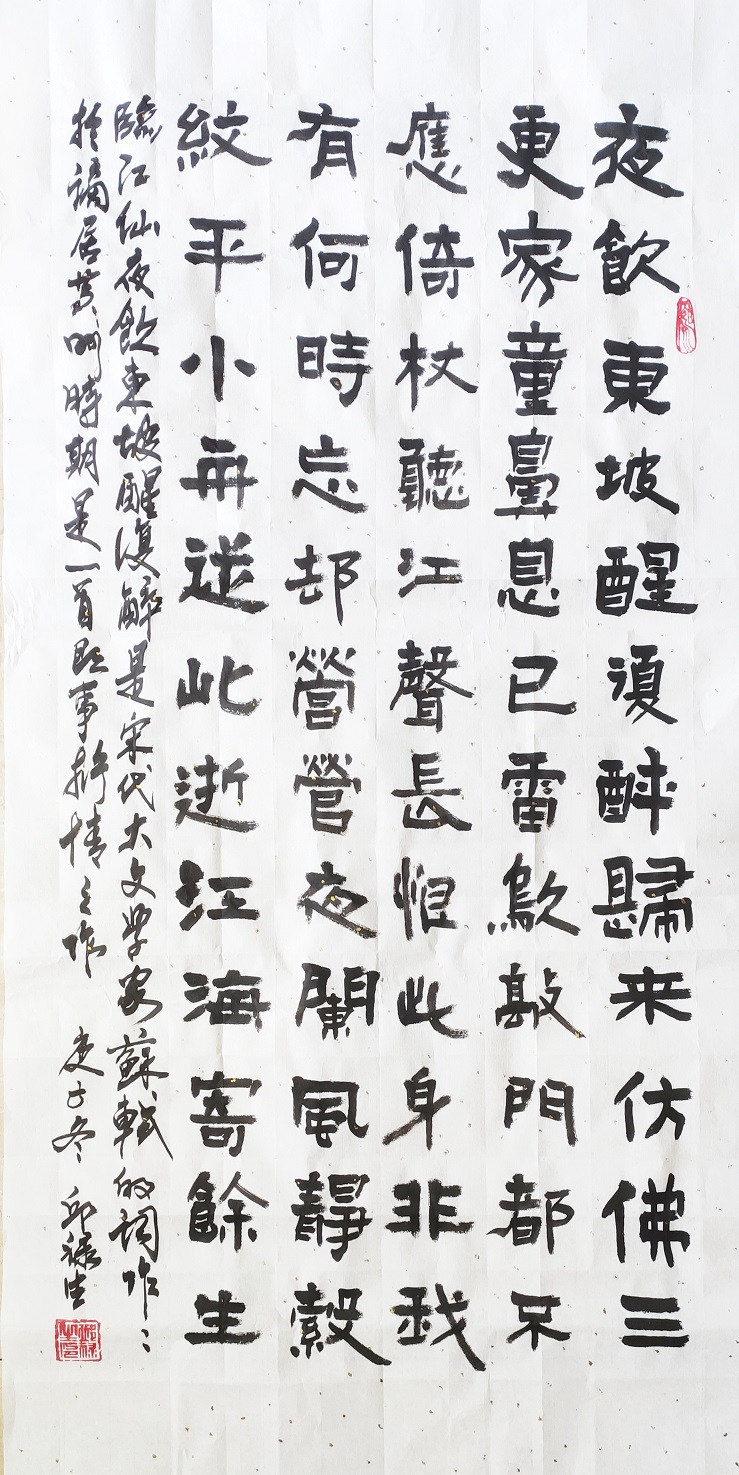 夜飲東坡醒復醉歸来仿佛三
更家童鼻息已雷鳴敲門都不
應倚杖聽江聲長恨此身非我
有何時忘却營營夜闌風靜縠
紋平小舟從此逝江海寄餘生
臨江仙夜飲東坡醒復醉是宋代大文学家蘇軾的詞作〻
於謫居黃州時期是一首即事抒情之作 庚子冬 邱祿生